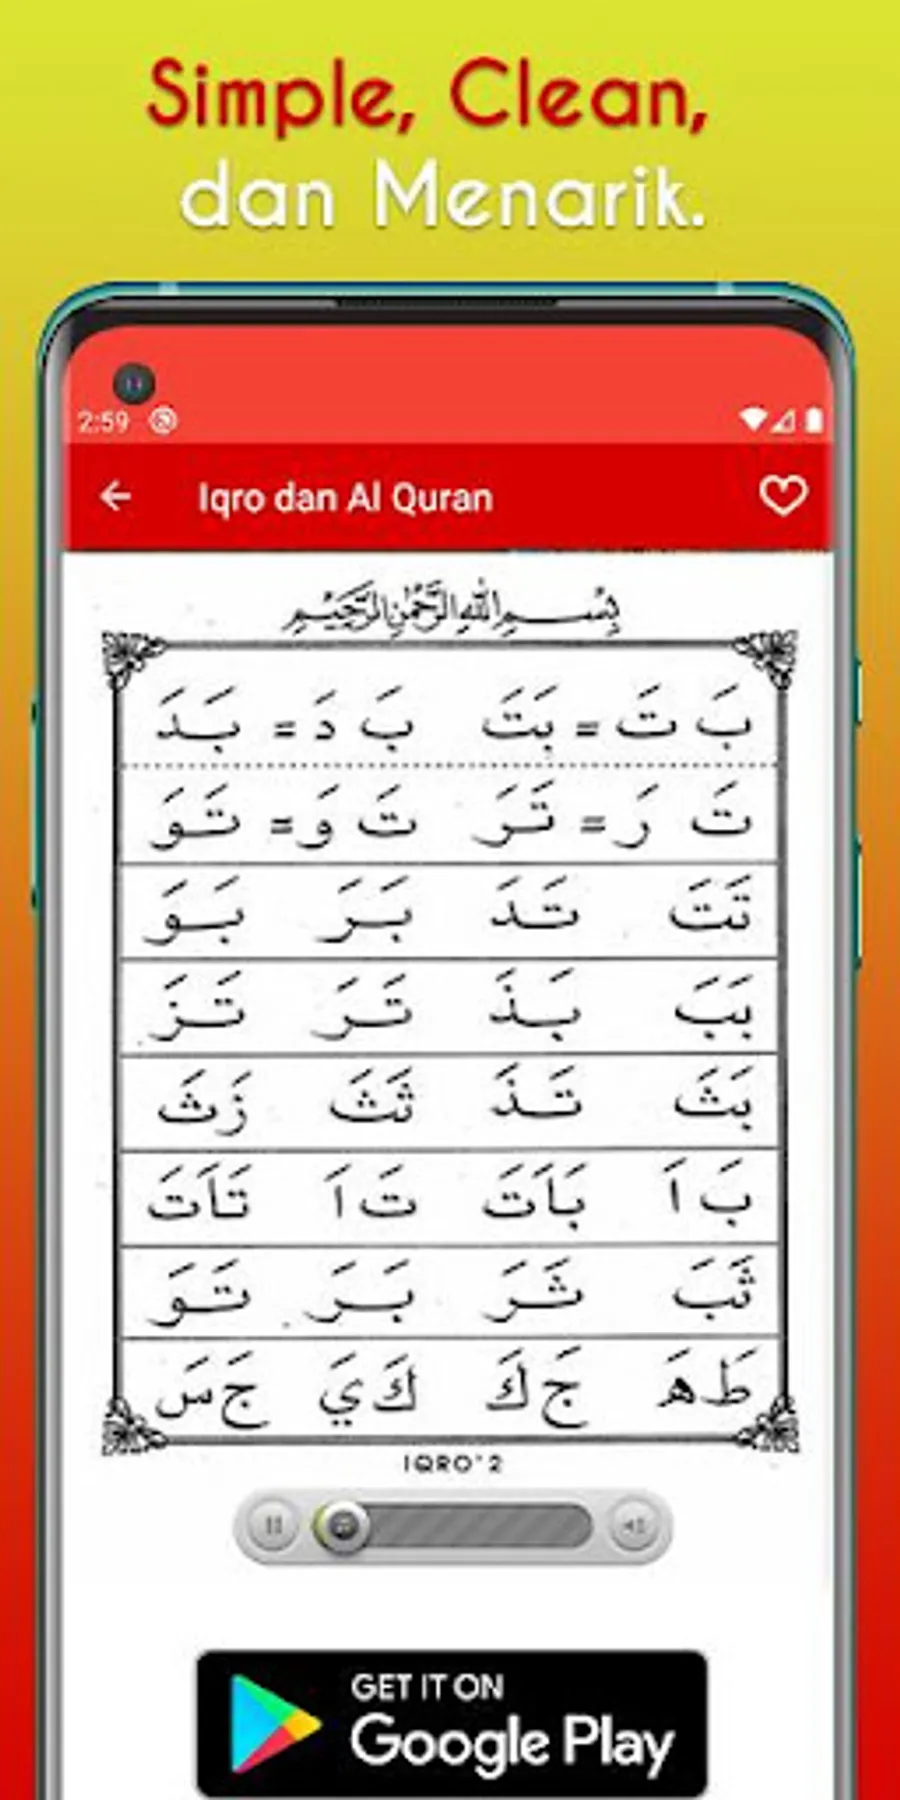 Simple, Clean,
dan Menarik.
2:59
Iqro dan Al Quran
بِسْمِ اللهِ الرَّحْمٰنِ الرَّحِيْمِ
بَ تَ = بَتَ بَ دَ = بَدَ
تَ رَ = تَرَ تَ وَ = تَوَ
تَتَ تَدَ بَرَ بَوَ
بَبَ بَذَ تَرَ تَزَ
بَثَ تَذَ ثَثَ زَثَ
بَ اَ بَاَتَ تَ اَ تَاَتَ
ثَبَ ثَرَ بَرَ تَوَ
طَ هَ جَ كَ كَ يَ جَ سَ
IQRO' 2
GET IT ON
Google Play